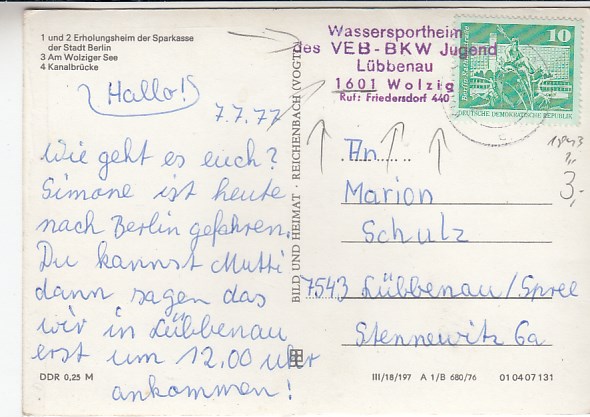 1 und 2 Erholungsheim der Sparkasse
der Stadt Berlin
3 Am Wolziger See
4 Kanalbrücke
Hallo!
7.7.77
Wie geht es euch?
Simone ist heute
nach Berlin gefahren.
Du kannst Mutti
dann sagen das
wir in Lübbenau
erst um 12.00 uhr
ankommen!
DDR 0,25 M
BILD UND HEIMAT · REICHENBACH (VOGTL)
Wassersportheim
des VEB-BKW Jugend
Lübbenau
1601 Wolzig
Ruf: Friedersdorf 440
10
DEUTSCHE DEMOKRATISCHE REPUBLIK
3,-
An
Marion
Schulz
7543 Lübbenau/Spree
Stennewitz 6a
III/18/197 A 1/B 680/76 01 04 07 131